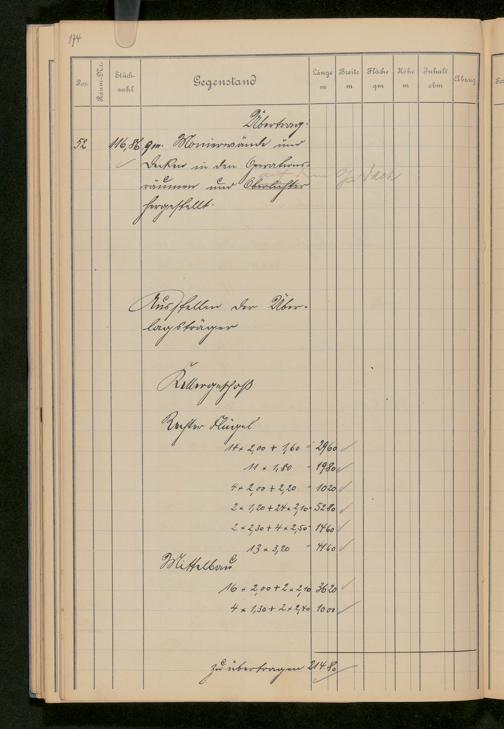 174
Pos. Raum-Nr. Stückzahl Gegenstand Länge m Breite m Fläche qm Höhe m Inhalt cbm Abzug
Übertrag:
52 116,86 qm. Monierwände und
Decken in den Operations-
räumen und Oberlichter
hergestellt.
Ausstellen der Über-
lagsträger
Kellergeschoß
Rechter Flügel
14 × 2,00 + 1,60 = 29 60
11 × 1,80 = 19 80
4 × 2,00 + 2,20 = 10 20
2 × 1,20 + 24 × 2,10 = 52 80
2 × 2,30 + 4 × 2,50 = 14 60
13 × 3,20 = 41 60
Mittelbau
16 × 2,00 + 2 × 2,10 36 20
4 × 1,30 + 2 × 2,40 10 00
zu übertragen 214 80